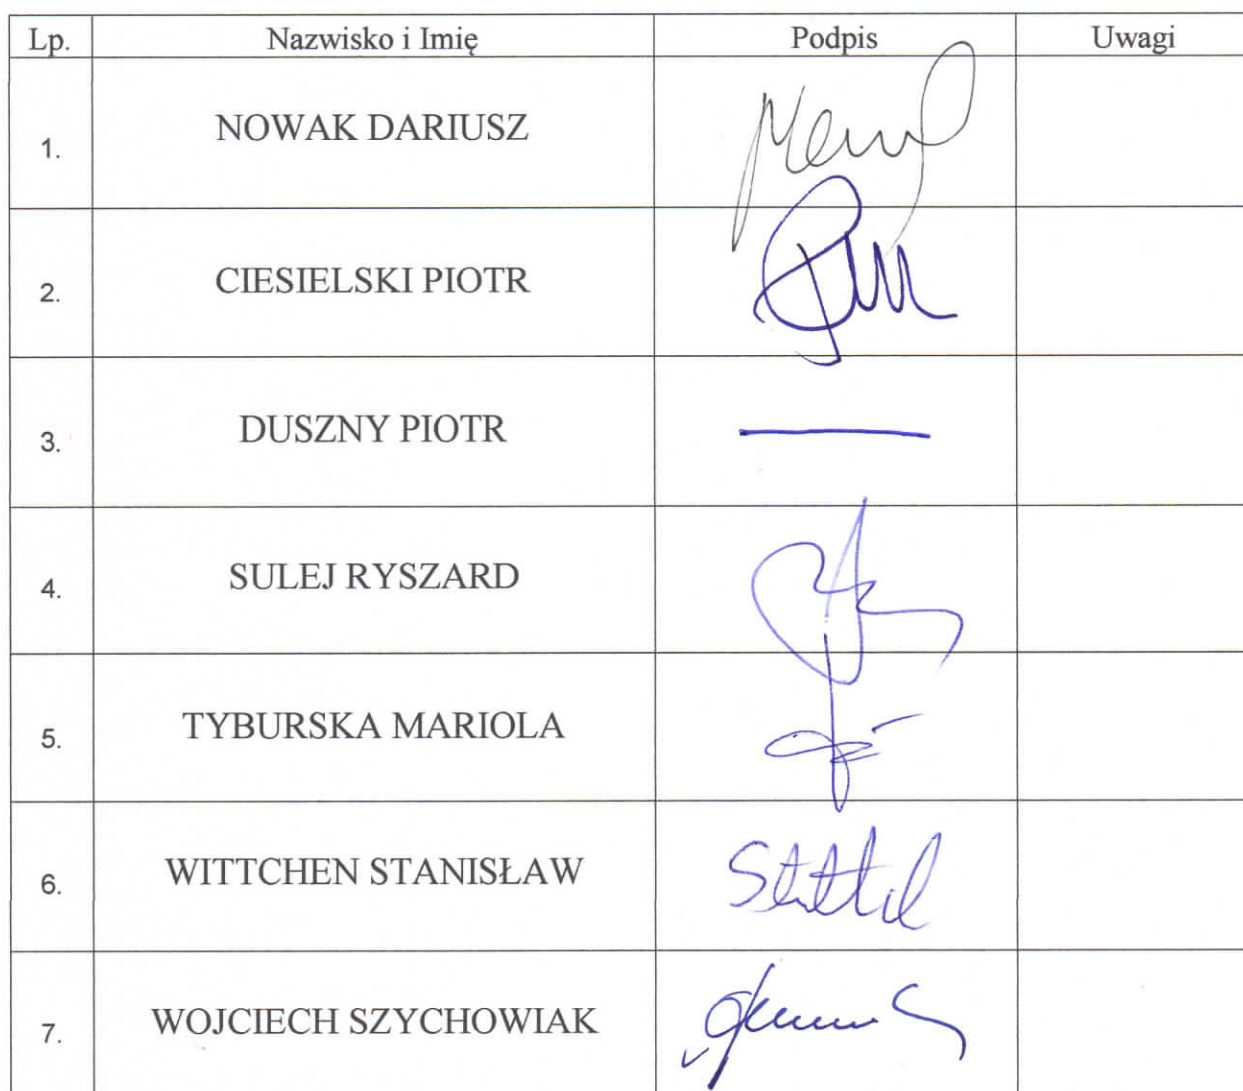 Lp. Nazwisko i Imię Podpis Uwagi
1. NOWAK DARIUSZ
2. CIESIELSKI PIOTR
3. DUSZNY PIOTR
4. SULEJ RYSZARD
5. TYBURSKA MARIOLA
6. WITTCHEN STANISŁAW
7. WOJCIECH SZYCHOWIAK